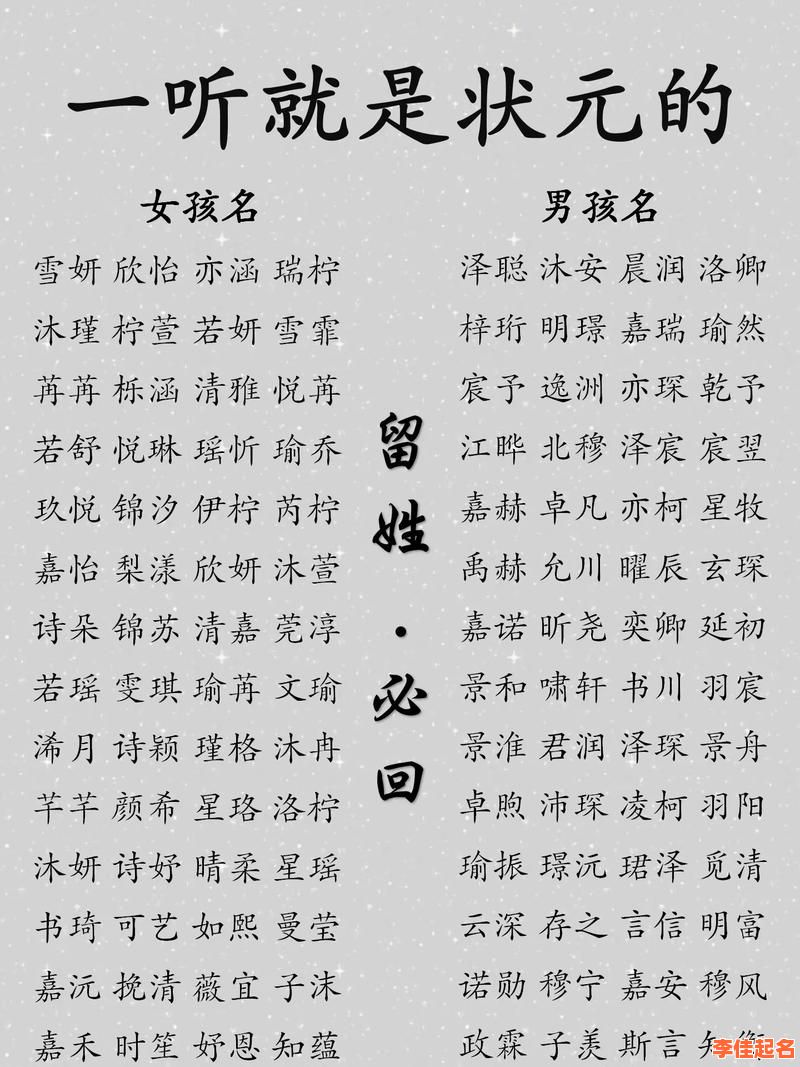 一听就是状元的
女孩名
雪妍 欣怡 亦涵 瑞柠
沐瑾 柠萱 若妍 雪霏
苒苒 栎涵 清雅 悦苒
若舒 悦琳 瑶忻 瑜乔
玖悦 锦汐 伊柠 芮柠
嘉怡 梨漾 欣妍 沐萱
诗朵 锦苏 清嘉 莞淳
若瑶 雯琪 瑜苒 文瑜
浠月 诗颖 瑾格 沐冉
芊芊 颜希 星珞 洛柠
沐妍 诗妤 晴柔 星瑶
书琦 可艺 如熙 曼莹
嘉沅 挽清 薇宜 子沫
嘉禾 时笙 妤恩 知蕴
留姓·必回
男孩名
泽聪 沐安 晨润 洛卿
梓珩 明璟 嘉瑞 瑜然
宸予 逸洲 亦琛 乾予
江晔 北穆 泽宸 宸翌
嘉赫 卓凡 亦柯 星牧
禹赫 允川 曜辰 玄琛
嘉诺 昕尧 奕卿 延初
景和 啸轩 书川 羽宸
景淮 君润 泽琛 景舟
卓煦 沛琛 凌柯 羽阳
瑜振 璟沅 珺泽 觅清
云深 存之 言信 明富
诺勋 穆宁 嘉安 穆风
政霖 子羡 斯言 知衡
李佳起名